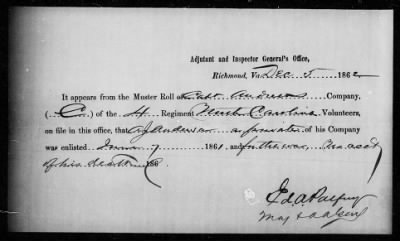 Adjutant and Inspector General's Office,
Richmond, Va. Dec 5 1862
It appears from the Muster Roll of Capt Company,
( C ) of the 4 Regiment North Carolina Volunteers,
on file in this office, that Anderson a private of his Company
was enlisted 7 1861 and for the war,
of his death 186
Ed. A. Palfrey
Maj & A A Genl